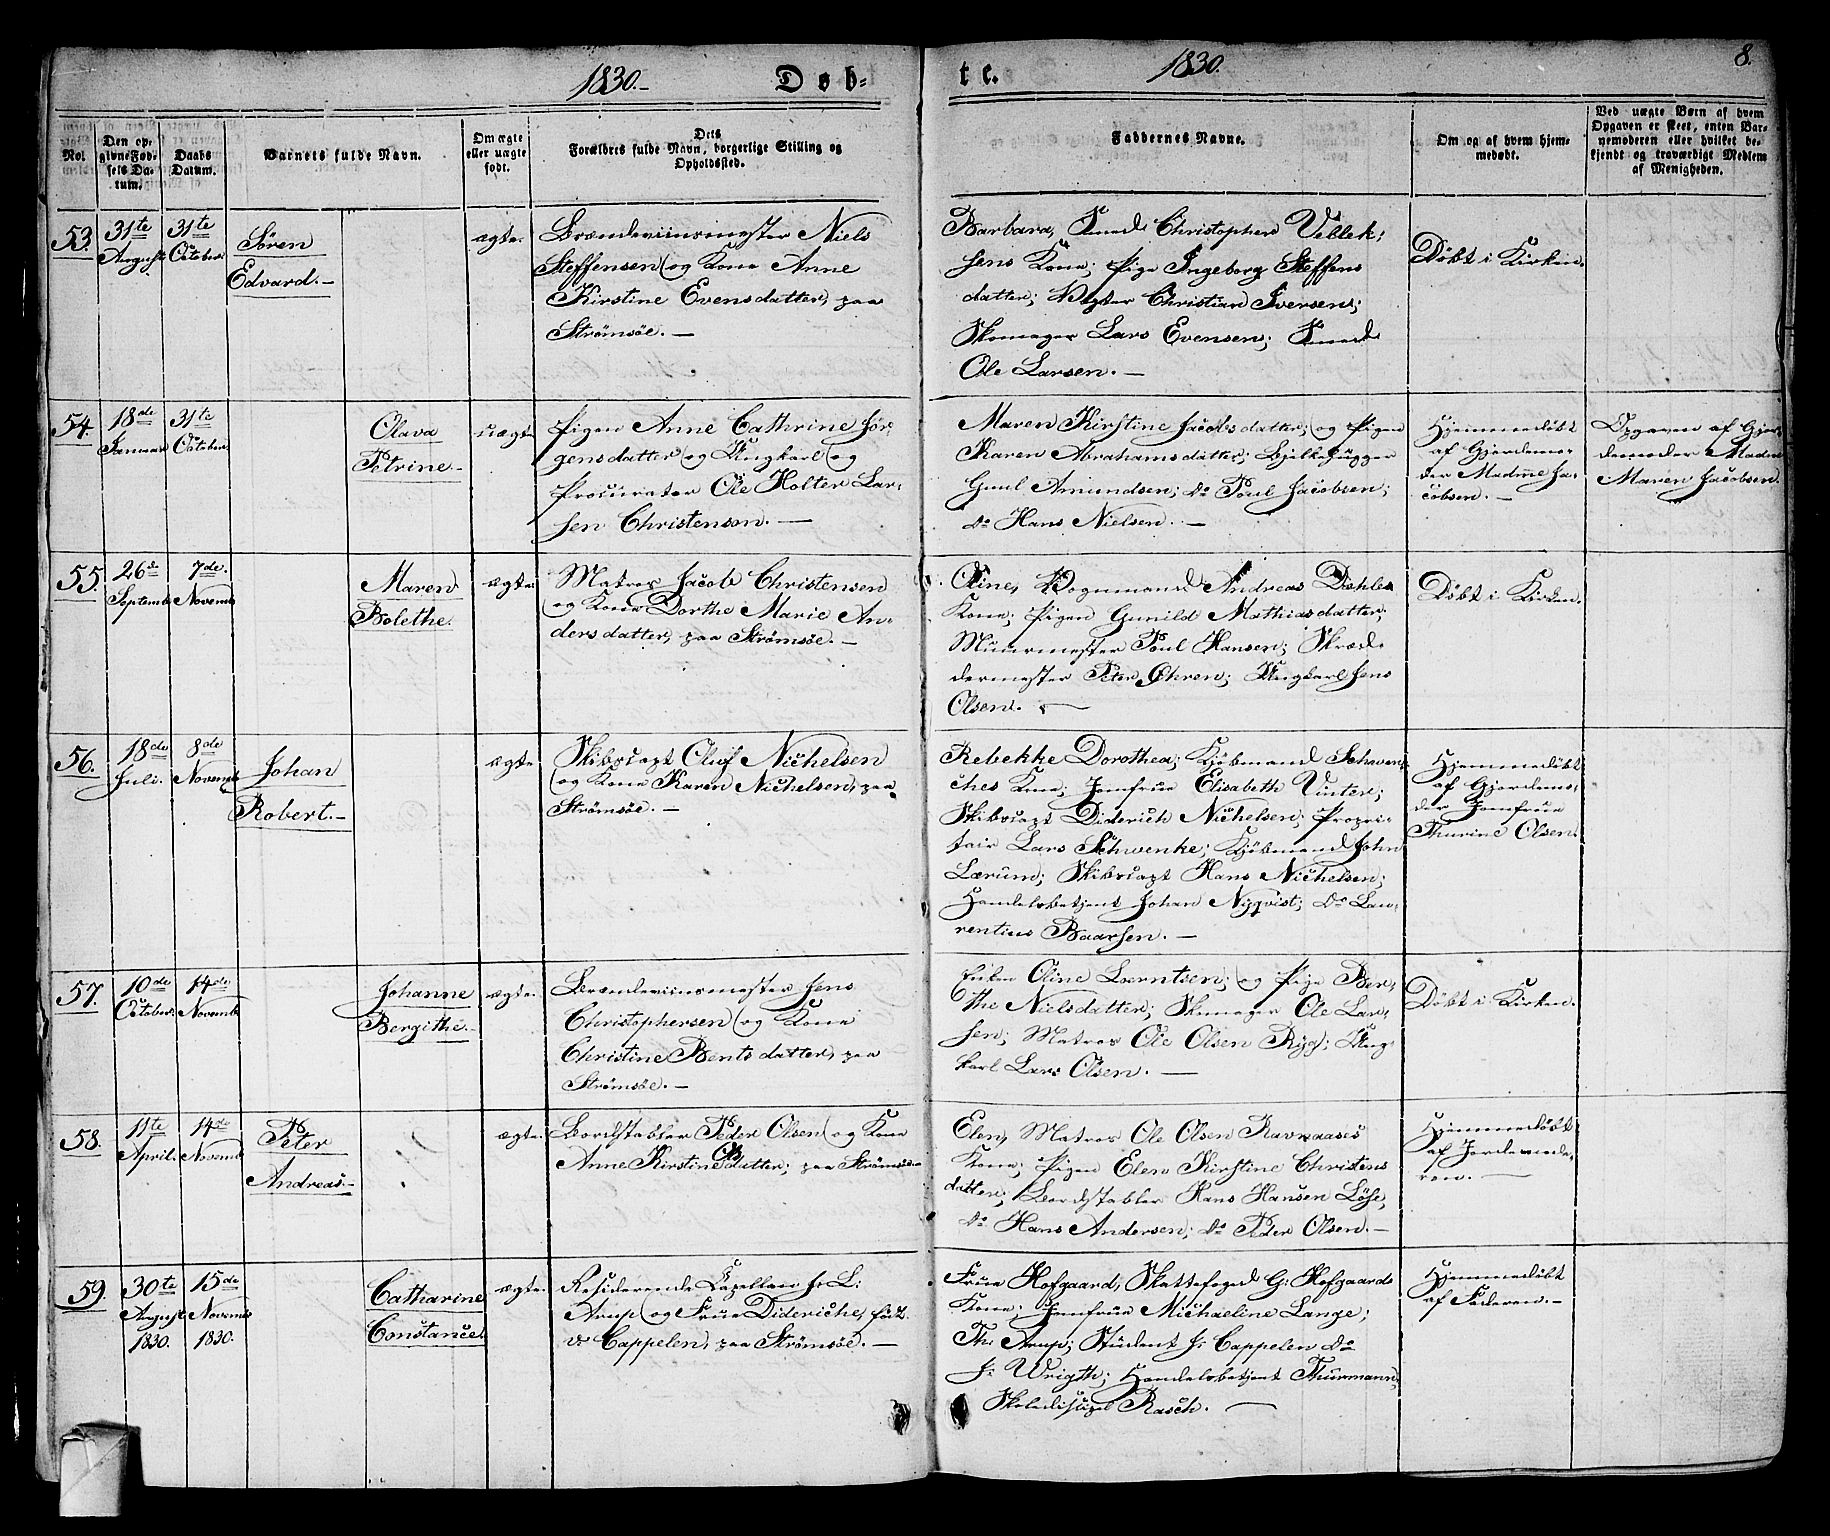 1830.-
Døb-
te.
1830.
8.
No.
Den op-
givne Fød-
sels Da-
tum.
Daabs
Datum.
Barnets fulde Navn.
Om ægte
eller uægte
født.
Dets
Forældres fulde Navn, borgerlige Stilling og
Opholdssted.
Faddernes Navne.
Om og af hvem hjem-
medøbt.
Ved uægte Børn af hvem
Opgaven er skeet, enten Bar-
nemoderen eller hvilket be-
kjendt og troværdigt Medlem
af Menigheden.
53.
31te
August
31te
October
Sören
Edvard.-
ægte.
Brændeviinsmester Niels
Steffensen og Kone Anne
Kirstine Evensdatter, paa
Strömsöe.-
Barbara, Smed Christophers Vellek-
sens Kone; Pige Ingeborg Steffens
datter; Vegter Christian Iversens;
Skomager Lars Evensen; Smed
Ole Larsen.-
Döbt i Kirken.
54.
18de
Januar
31te
October
Olava
Petrine.-
uægte
Pigen Anne Cathrine Jör-
gensdatter og Ungkarl og
Procurator Ole Holter Lar-
sen Christenson.-
Maren Kirstine Jacobsdatter, og Pigen
Karen Abrahamsdatter; Bjelkehugger
Guul Amundsen; do Poul Jacobsen;
do Hans Nielsen.-
Hjemmedöbt
af Gjordemo-
der Madme Ja-
cobsen.-
Opgaven af Gjor-
demoder Madm
Maren Jacobsen.
55.
26de
September
7de
Novemb
Maren
Bolethe.
ægte
Matros Jacob Christensen
og Kone Dorthe Marie An-
dersdatter, paa Strömsöe.-
Oline, Vognmand Andreas Dæhles
Kone; Pigen Gunild Mathiasdatter;
Muurmester Poul Hansen; Skræd-
dermester Peter Öhren; Ungkarl Jens
Olsen.-
Döbt i Kirken.
56.
18de
Juli.
8de
Novemb
Johan
Robert.-
ægte.
Skibscapt Oluf Nichelsen
og Kone Karen Nichelsen, paa
Strömsöe.-
Rebekke Dorothea, Kjöbmand Schwen-
ches Kone; Jomfrue Elisabeth Vinter;
Skibscapt Diderich Nichelsen; Propri-
tair Lars Schwenke; Kjöbmand John
Lærum; Skibscapt Hans Nichelsen;
Handelsbetjent Johan Nyqvist; do Lau-
rentius Baarsen.-
Hjemmedöbt
af Gjordemo-
der Jomfrue
Thurine Olsen.
57.
10de
October.
14de
Novemb
Johanne
Bergithe.-
ægte.
Brændeviinsmester Jens
Christophersen og Kone
Christine Bentsdatter, paa
Strömsöe.-
Enken Oline Berntsen; og Pige Ber-
the Nielsdatter; Skomager Ole Lar-
sen; Matros Ole Olsen Ryg; Ung-
karl Lars Olsen.-
Döbt i Kirken.
58.
11te
April.
14de
Novemb
Peter
Andreas.-
ægte.
Bordstabler Peder Olsen og Kone
Anne Kirstine Olsdatter; paa Strömsöe.-
Elen, Matros Ole Olsen Ravnaases
Kone; Pigen Elen Kirstine Christens
datter; Bordstabler Hans Hansen Löse,
do Hans Andersen; do Peder Olsen.-
Hjemmedöbt
af Jordemode-
ren.-
59.
30te
August
1830.
15de
Novemb
1830.
Catharine
Constance.
ægte.
Residerende Capellan Hr L:
Arup og Frue Dideriche, fød
v. Cappelen, paa Strömsöe.-
Frue Hofgaard, Skattefoged G: Hofgaards
Kone; Jomfrue Michaeline Lange;
Th: Arup; Student J: Cappelen do
J: Wrigth; Handelsbetjent Thurmann
Skoledisipel Rasch.-
Hjemmedöbt
af Faderen.-